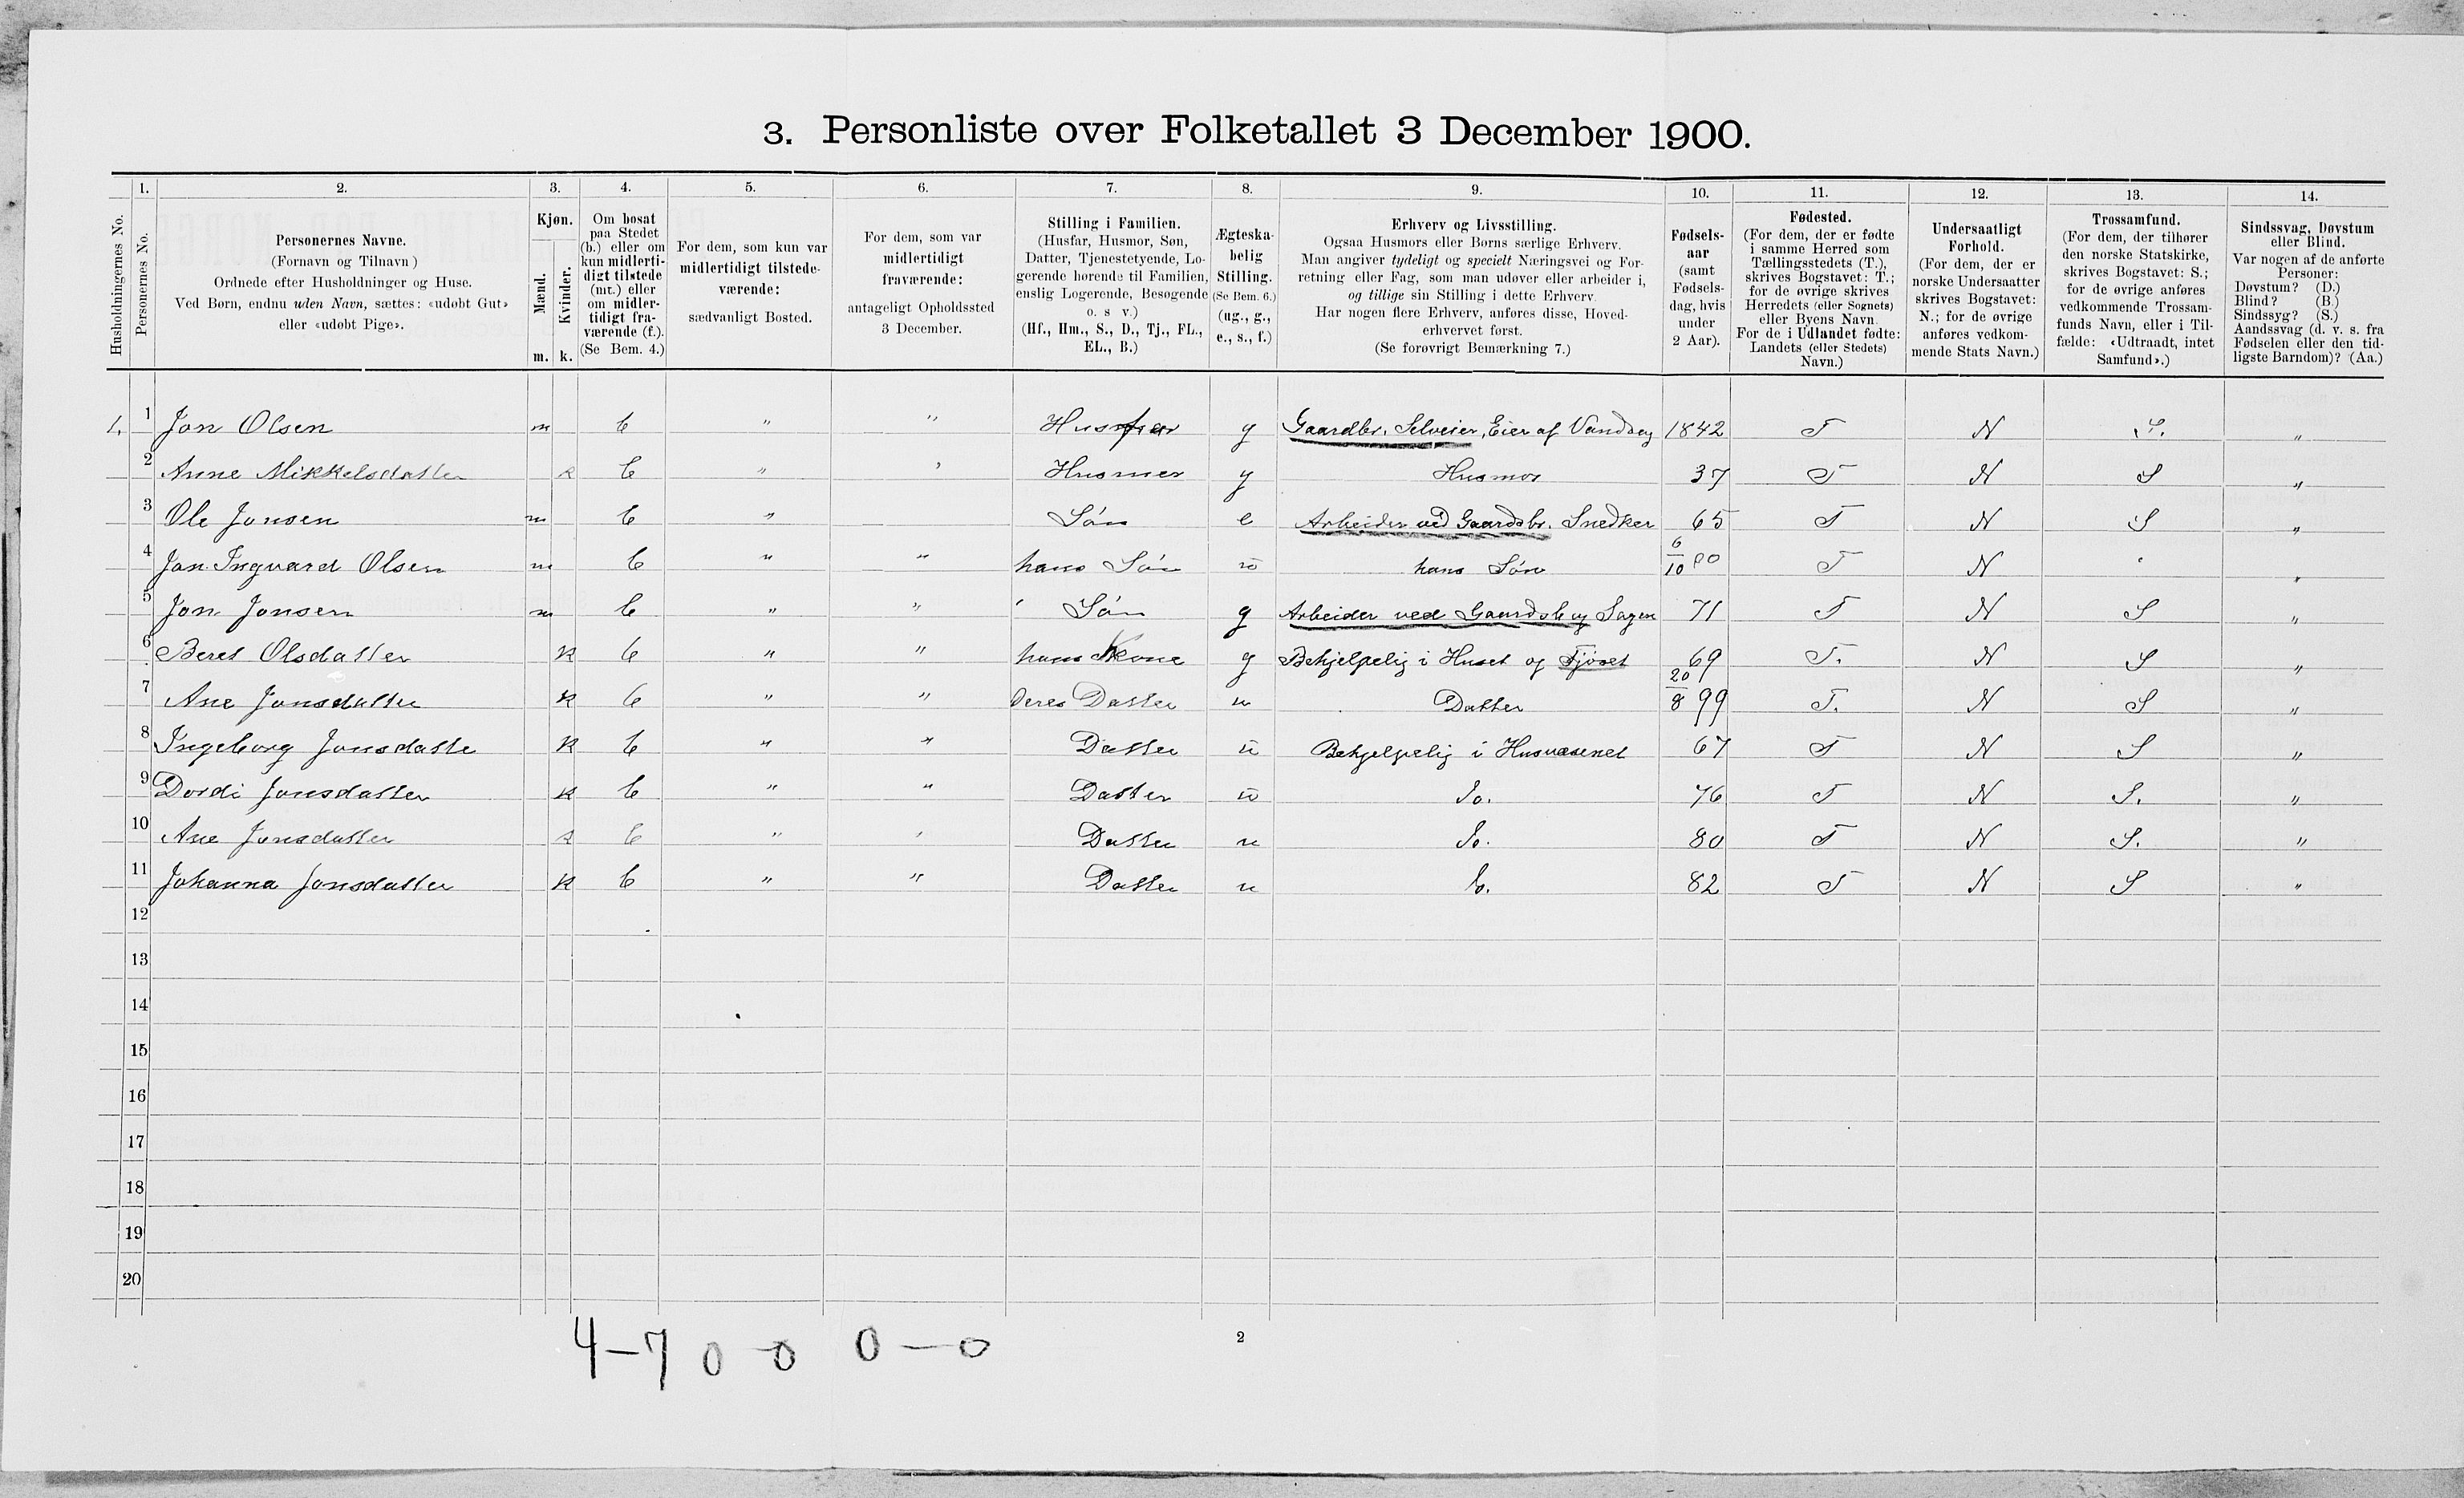 3. Personliste over Folketallet 3 December 1900.
1. 2. 3. 4. 5. 6. 7. 8. 9. 10. 11. 12. 13. 14.
Husholdningernes No.
Personernes No.
Personernes Navne.
(Fornavn og Tilnavn)
Ordnede efter Husholdninger og Huse.
Ved Børn, endnu uden Navn, sættes: «udøbt Gut»
eller «udøbt Pige».
Kjøn.
Mænd.
Kvinder.
m. k.
Om bosat
paa Stedet
(b.) eller om
kun midlerti-
digt tilstede
(mt.) eller
om midler-
tidigt fra-
værende (f.).
(Se Bem. 4.)
For dem, som kun var
midlertidigt tilstede-
værende:
sædvanligt Bosted.
For dem, som var
midlertidigt
fraværende:
antageligt Opholdssted
3 December.
Stilling i Familien.
(Husfar, Husmor, Søn,
Datter, Tjenestetyende, Lo-
gerende hørende til Familien,
enslig Logerende, Besøgende
o. s v.)
(Hf., Hm., S., D., Tj., FL.,
EL., B.)
Ægteska-
belig
Stilling.
(Se Bem. 6.)
(ug., g.,
e., s., f.)
Erhverv og Livsstilling.
Ogsaa Husmors eller Børns særlige Erhverv.
Man angiver tydeligt og specielt Næringsvei og For-
retning eller Fag, som man udøver eller arbeider i,
og tillige sin Stilling i dette Erhverv.
Har nogen flere Erhverv, anføres disse, Hoved-
erhvervet først.
(Se forøvrigt Bemærkning 7.)
Fødsels-
aar
(samt
Fødsels-
dag, hvis
under
2 Aar).
Fødested.
(For dem, der er fødte
i samme Herred som
Tællingsstedets (T.),
skrives Bogstavet: T.;
for de øvrige skrives
Herredets (eller Sognets)
eller Byens Navn.
For de i Udlandet fødte:
Landets (eller Stedets)
Navn.)
Undersaatligt
Forhold.
(For dem, der er
norske Undersaatter
skrives Bogstavet:
N.; for de øvrige
anføres vedkom-
mende Stats Navn.)
Trossamfund.
(For dem, der tilhører
den norske Statskirke,
skrives Bogstavet: S.;
for de øvrige anføres
vedkommende Trossam-
funds Navn, eller i Til-
fælde: «Udtraadt, intet
Samfund».)
Sindssvag, Døvstum
eller Blind.
Var nogen af de anførte
Personer:
Døvstum? (D.)
Blind? (B.)
Sindssyg? (S.)
Aandssvag (d. v. s. fra
Fødselen eller den tid-
ligste Barndom)? (Aa.)
1. 1 Jon Olsen m b " " Husfar g Gaardbr. Selveier, Eier af Vandsag 1842 T N S. "
2 Anne Mikkelsdatter k b " " Husmor g Husmor 37 T N S "
3 Ole Jonsen m b " Søn e Arbeider ved Gaardsbr. Snedker 65 T N S "
4 Jon Ingvard Olsen m b " " hans Søn u hans Søn 6/10 00 T N "
5 Jon Jonsen m b " " Søn g Arbeider ved Gaardsb og Sagen 71 T N S "
6 Beret Olsdatter k b " " hans Kone g Behjelpelig i Huset og Fjøset 69 T. N S "
7 Ane Jonsdatter k b " " deres Datter u Datter 20/8 99 T. N S "
8 Ingeborg Jonsdatte k b " " Datter u Behjelpelig i Husvæsenet 67 T N S "
9 Dordi Jonsdatter k b " " Datter u Do. 76 T N S. "
10 Ane Jonsdatter k b " " Datter u Do. 80 T N S. "
11 Johanna Jonsdatter k b " " Datter u Do. 82 T N S "
12
13
14
15
16
17
18
19
20
4-7 0 0 0-0
2